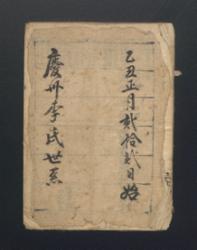 乙丑正月貳拾貳日始
慶州李氏世系